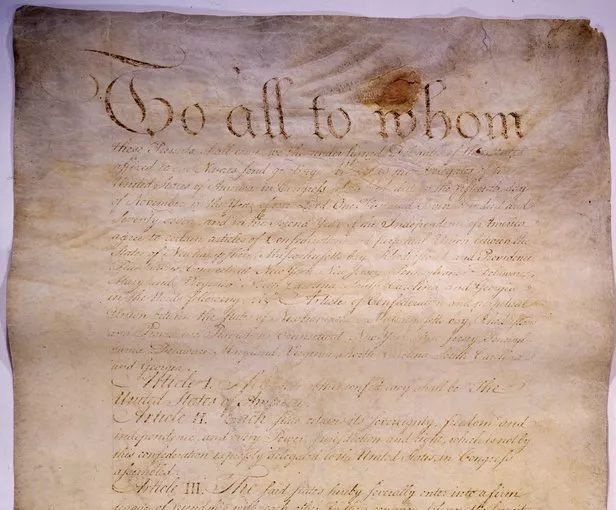 To all to whom
these Presents shall come, we the under signed Delegates of the States
affixed to our Names send greeting. Whereas the Delegates of the
United States of America in Congress assembled did on the fifteenth day
of November in the Year of our Lord One Thousand Seven Hundred and
Seventy seven, and in the Second Year of the Independence of America
agree to certain articles of Confederation and perpetual Union between the
States of Newhampshire, Massachusetts-bay, Rhodeisland and Providence
Plantations, Connecticut, New York, New Jersey, Pennsylvania, Delaware,
Maryland, Virginia, North-Carolina, South-Carolina and Georgia
in the Words following, viz. Articles of Confederation and perpetual
Union between the States of Newhampshire, Massachusetts-bay, Rhodeisland
and Providence Plantations, Connecticut, New-York, New-Jersey, Pennsyl-
vania, Delaware, Maryland, Virginia, North-Carolina, South-Carolina
and Georgia.
Article I. The Stile of this confederacy shall be "The
United States of America."
Article II. Each state retains its sovereignty, freedom and
independence, and every Power, Jurisdiction and right, which is not by
this confederation expressly delegated to the United States, in Congress
assembled.
Article III. The said states hereby severally enter into a firm
league of friendship with each other, for their common